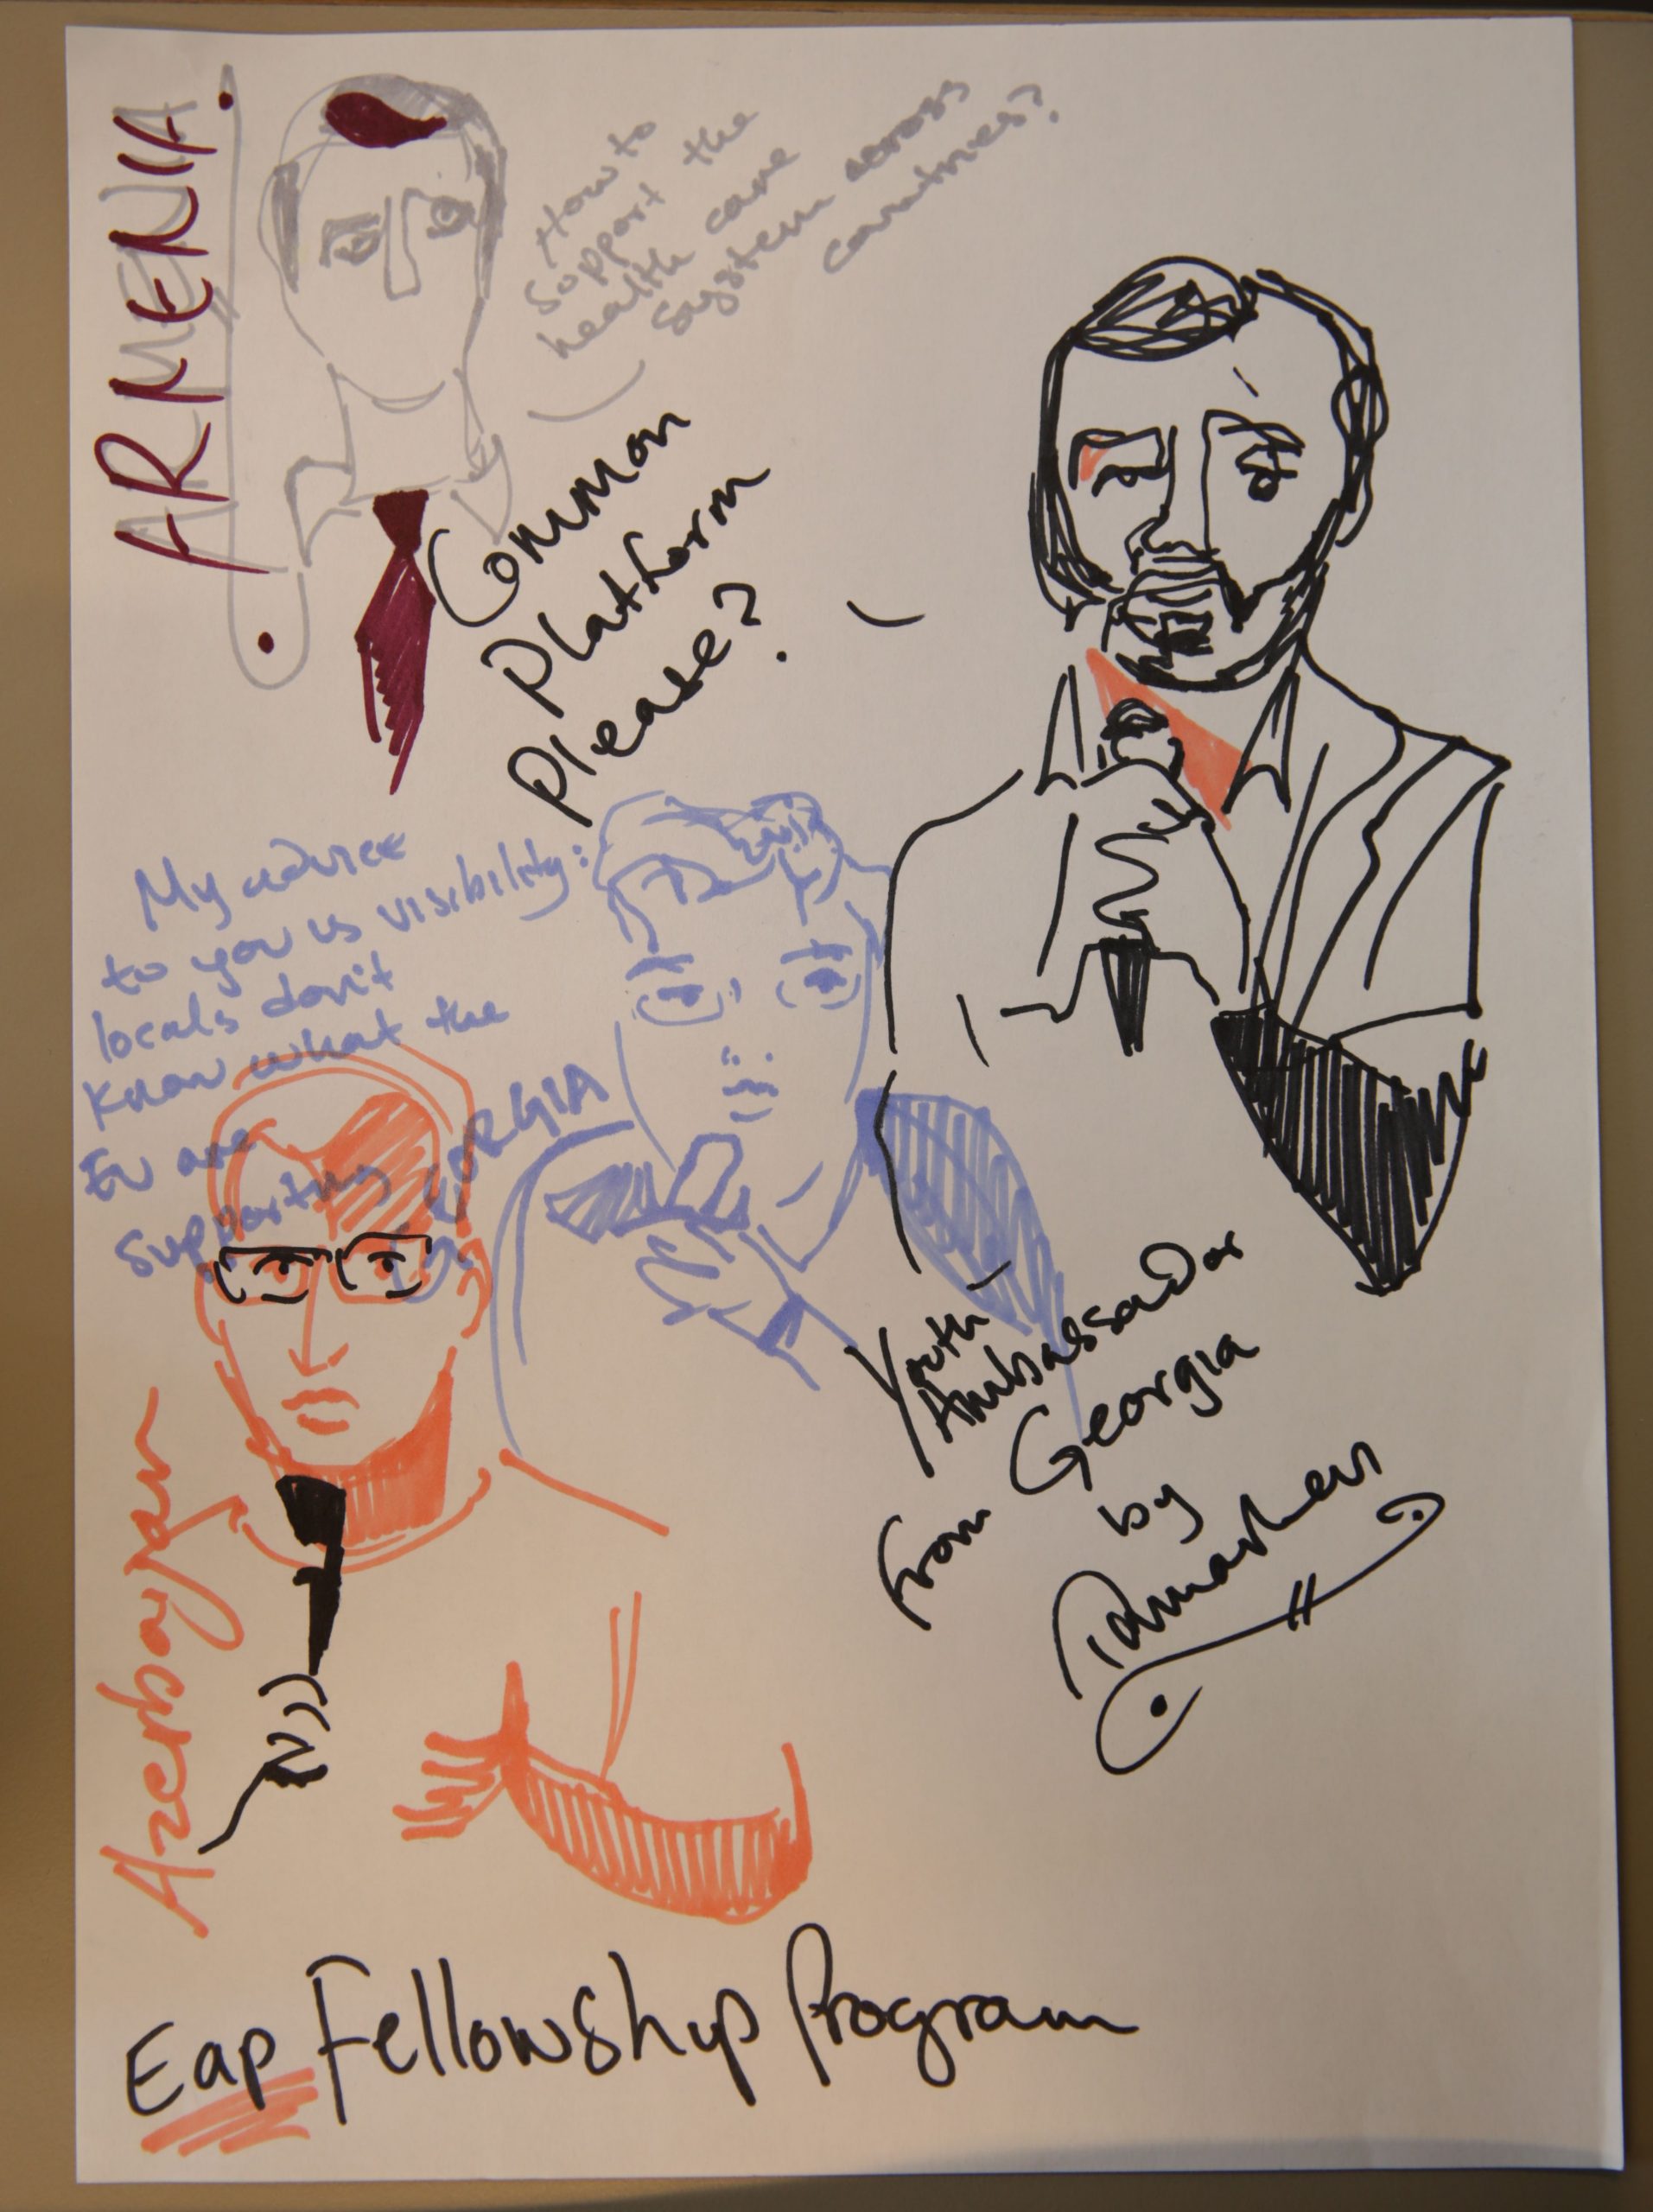 ARMENIA
How to
support the
health care
system across
countries?
Common
Platform
Please?
My advice
to you is visibility:
locals don't
know what the
EU are
supporting
GEORGIA
Azerbaijan
Youth
Ambassador
from Georgia
by
Eap Fellowship Program